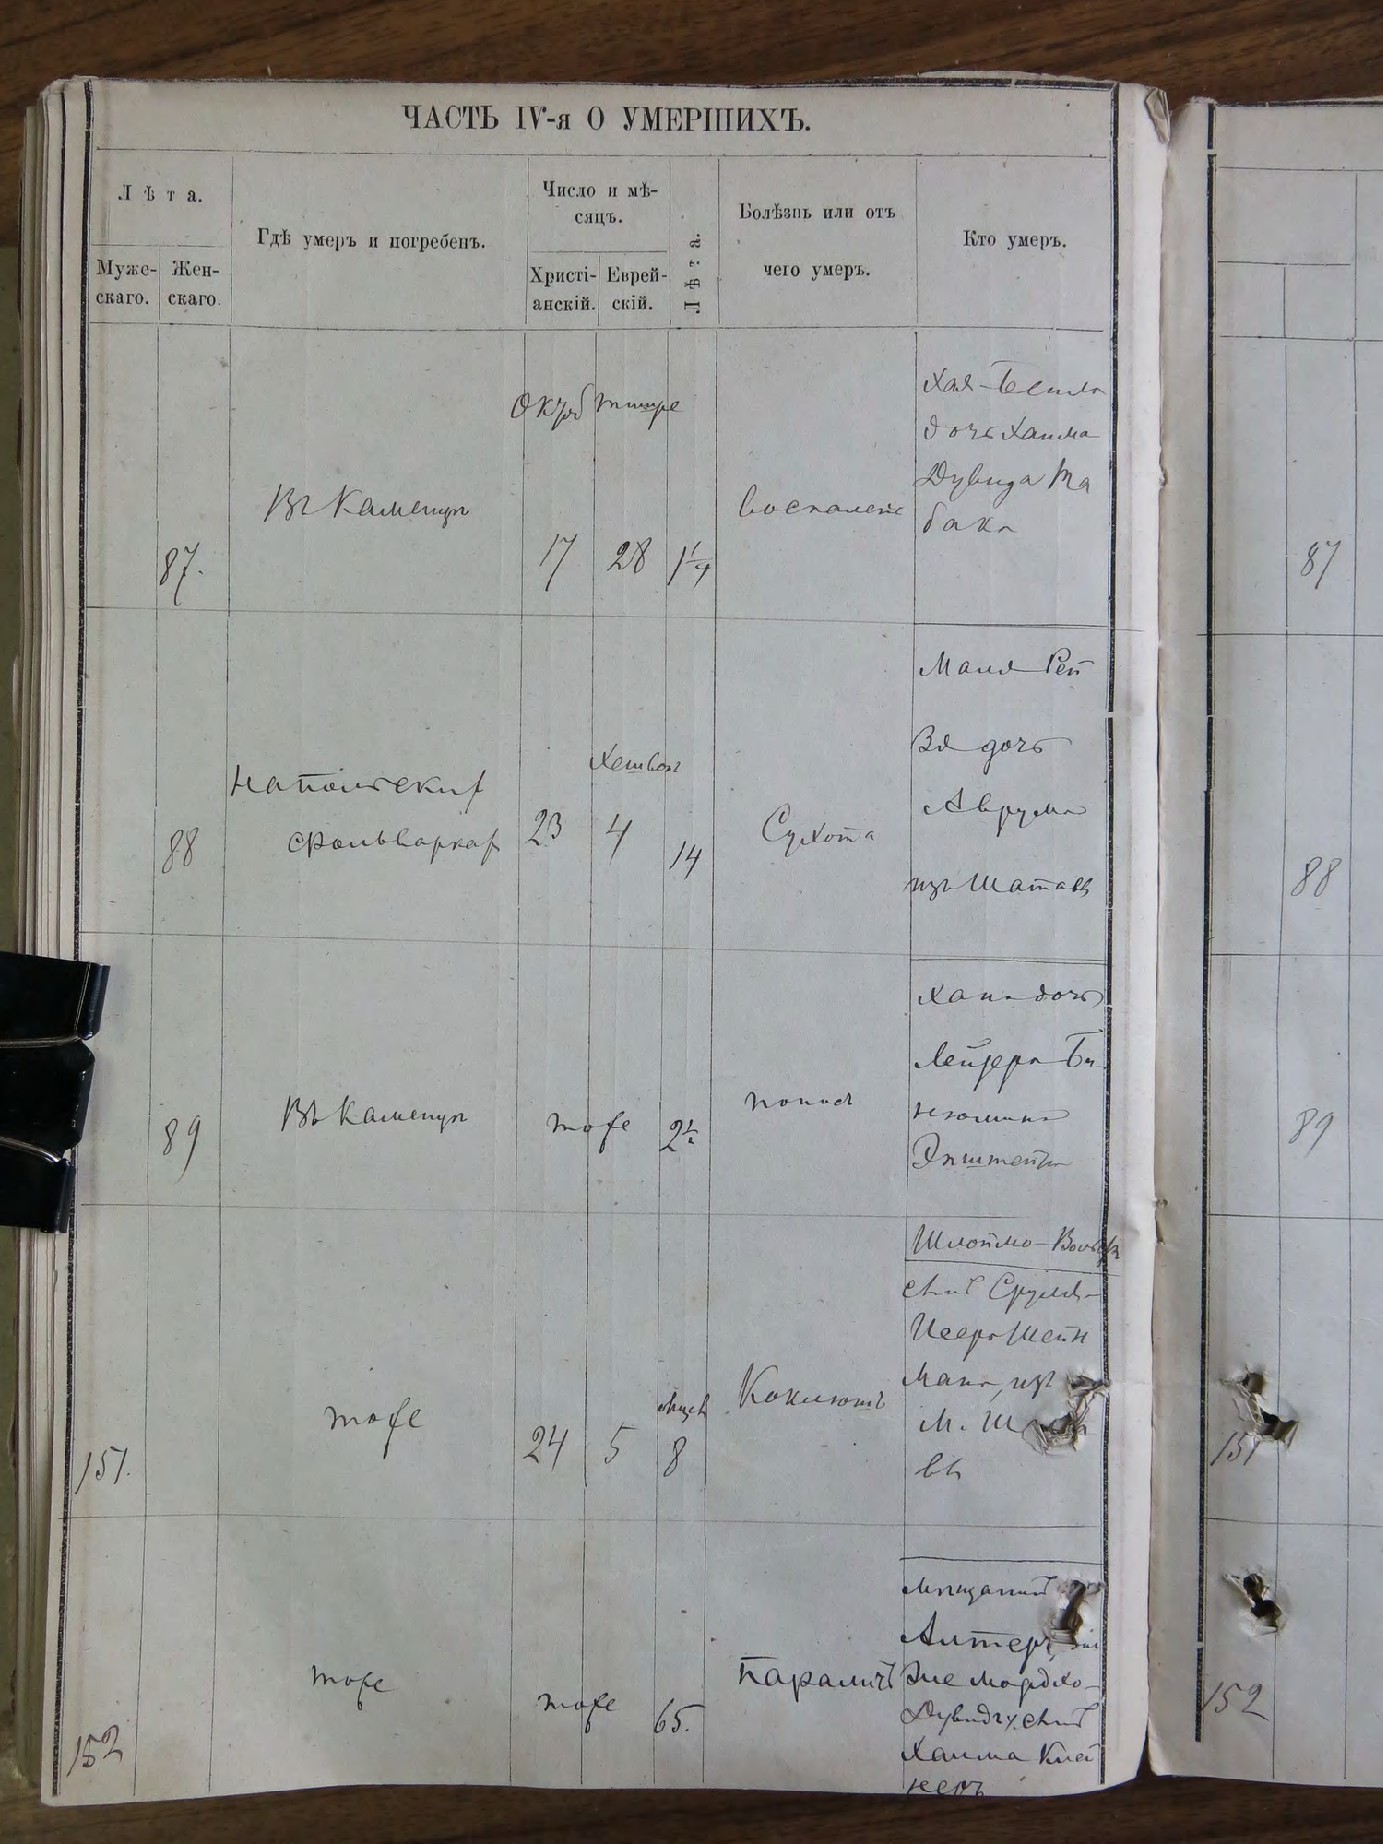 ЧАСТЬ IV-я О УМЕРШИХЪ.
Лѣта.
Муже-
скаго.
Жен-
скаго.
Гдѣ умеръ и погребенъ.
Число и мѣ-
сяцъ.
Христі-
анскій.
Еврей-
скій.
Лѣта.
Болѣзнь или отъ
чего умеръ.
Кто умеръ.
87.
Въ Каменцѣ
Октяб тишре
17
28
1 1/4
Воспаленіе
Хая-Бейла
дочь Хаима
Дувида Та
бака
87
88
На польскихъ
фольваркахъ
Хешвон
23
4
14
Сухота
Маня Рей
Зя дочь
Аврума
изъ Шатавы
88
89
Въ Каменцѣ
тоже
2 1/2
понос
Хана дочь
Лейзера Би
неюмина
Эпштейна
89
151.
тоже
24
5
мѣсяц
8
Коклюшъ
Шлоймо-Вольф
сынъ Сруля
Исера Шейн
мана, изъ
М. Ш
вы
151
152
тоже
тоже
65.
Параличъ
мѣщанинъ
Алтеръ
Мордхо-
Дувидъ сынъ
Хаима Клей
неръ
152